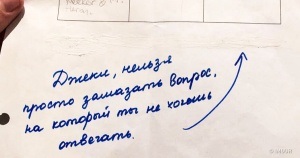 Джеки, нельзя
просто замазать вопрос,
на который ты не хочешь
отвечать.